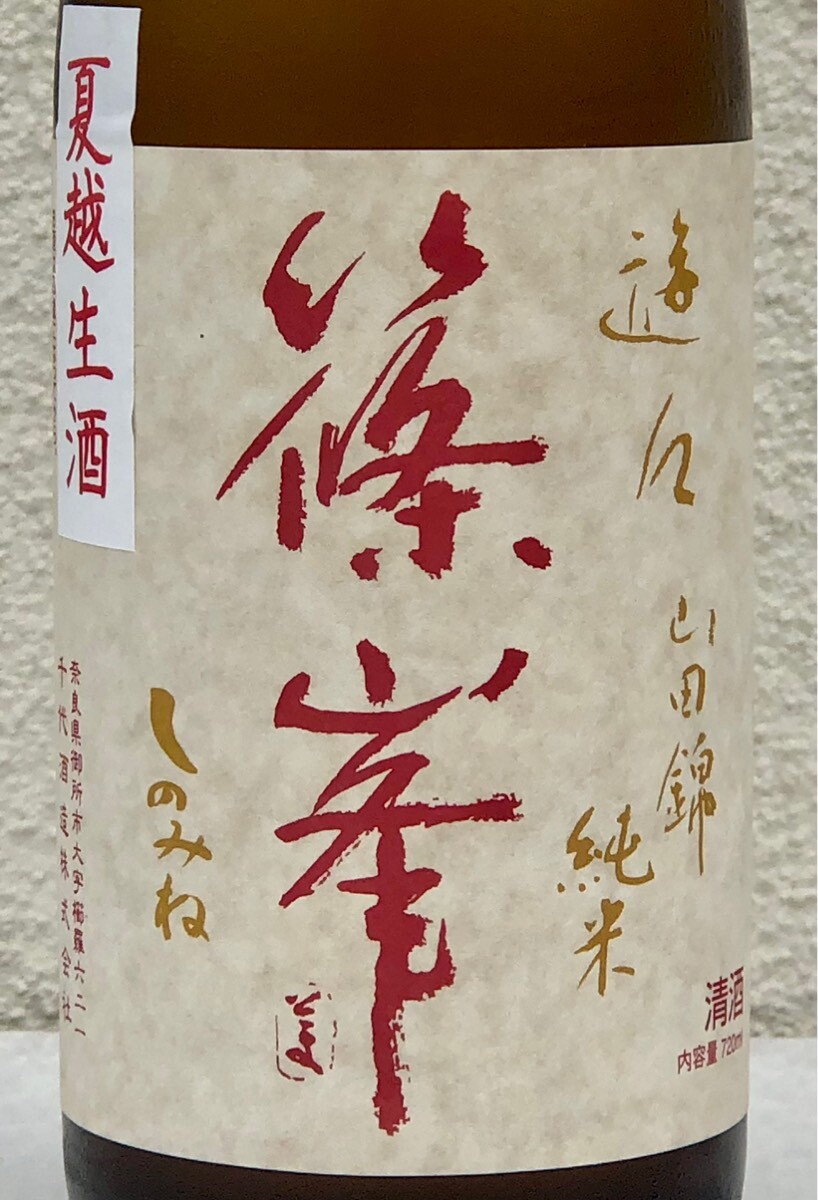 遊々
山田錦
純米
清酒
内容量 720ml
篠峯
しのみね
夏越生酒
奈良県御所市大字櫛羅六二一
千代酒造株式会社